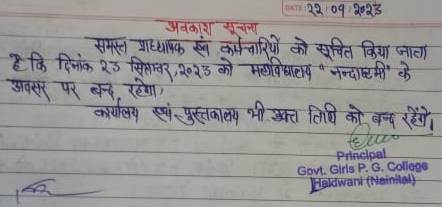 DATE: 22.09.2023
अवकाश सूचना
समस्त प्राध्यापक एवं कर्मचारियों को सूचित किया जाता
है कि दिनांक 23 सितम्बर, 2023 को महाविद्यालय "नन्दाष्टमी" के
अवसर पर बन्द रहेगा।
कार्यालय एवं पुस्तकालय भी उक्त तिथि को बन्द रहेंगे।
Principal
Govt. Girls P. G. College
Haldwani (Nainital)